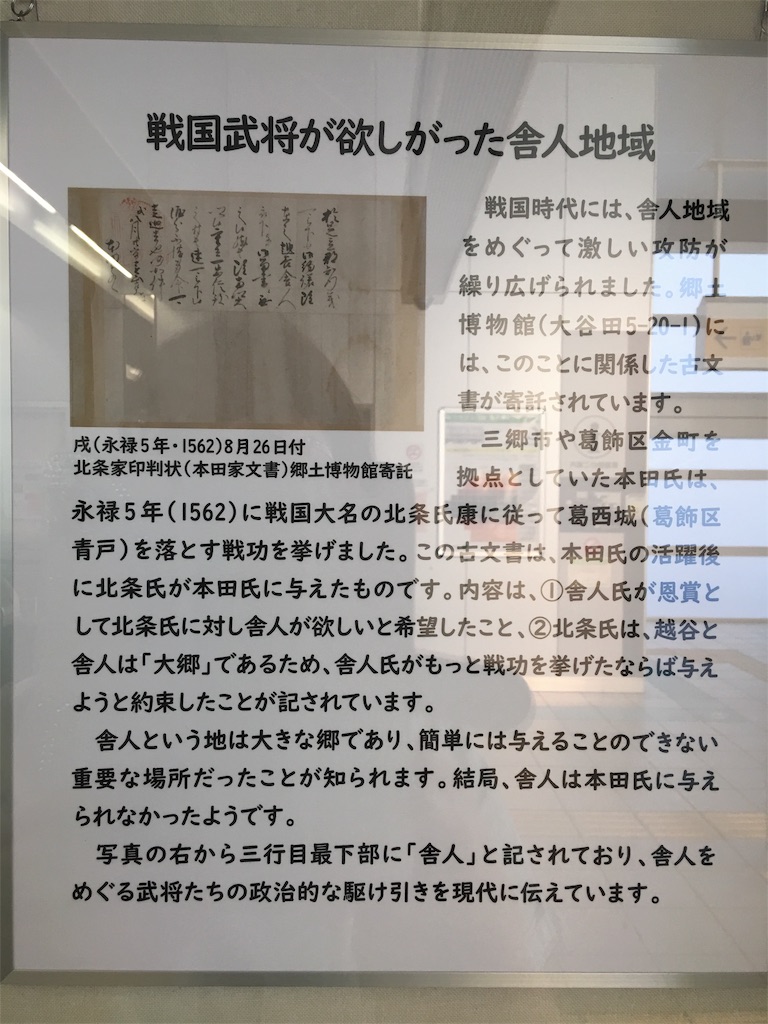 戦国武将が欲しがった舎人地域
戦国時代には、舎人地域
をめぐって激しい攻防が
繰り広げられました。郷土
博物館(大谷田5-20-1)に
は、このことに関係した古文
書が寄託されています。
三郷市や葛飾区金町を
拠点としていた本田氏は、
戌(永禄5年・1562)8月26日付
北条家印判状(本田家文書)郷土博物館寄託
永禄5年(1562)に戦国大名の北条氏康に従って葛西城(葛飾区
青戸)を落とす戦功を挙げました。この古文書は、本田氏の活躍後
に北条氏が本田氏に与えたものです。内容は、①舎人氏が恩賞と
して北条氏に対し舎人が欲しいと希望したこと、②北条氏は、越谷と
舎人は「大郷」であるため、舎人氏がもっと戦功を挙げたならば与え
ようと約束したことが記されています。
舎人という地は大きな郷であり、簡単には与えることのできない
重要な場所だったことが知られます。結局、舎人は本田氏に与え
られなかったようです。
写真の右から三行目最下部に「舎人」と記されており、舎人を
めぐる武将たちの政治的な駆け引きを現代に伝えています。